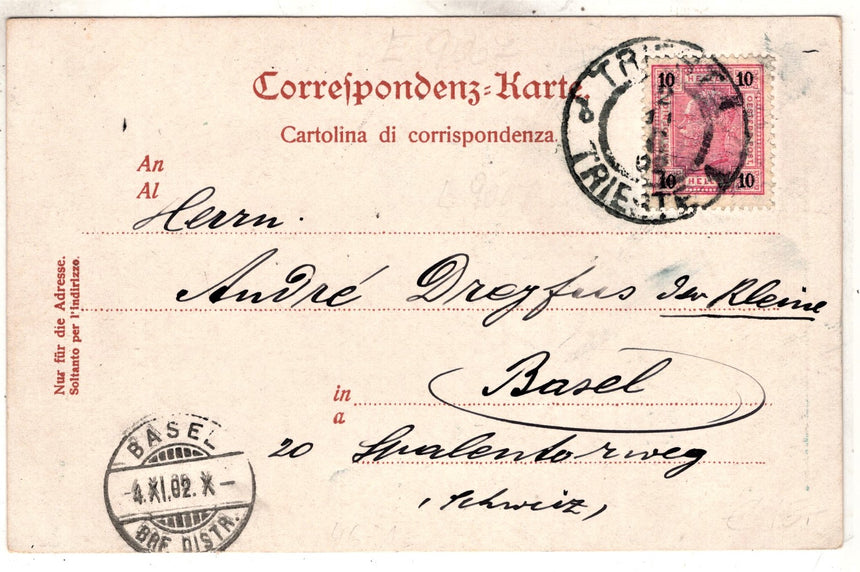 Correspondenz-Karte.
Cartolina di corrispondenza.
An
Al
Herrn.
André Dreyfus der Kleine
in
a
Basel
20 Spalentorweg
(Schweiz)
Nur für die Adresse.
Soltanto per l'indirizzo.
10 10
10 10
TRIEST 1
TRIESTE 1
BASEL
4.XI.02. X
BRF. DISTR.